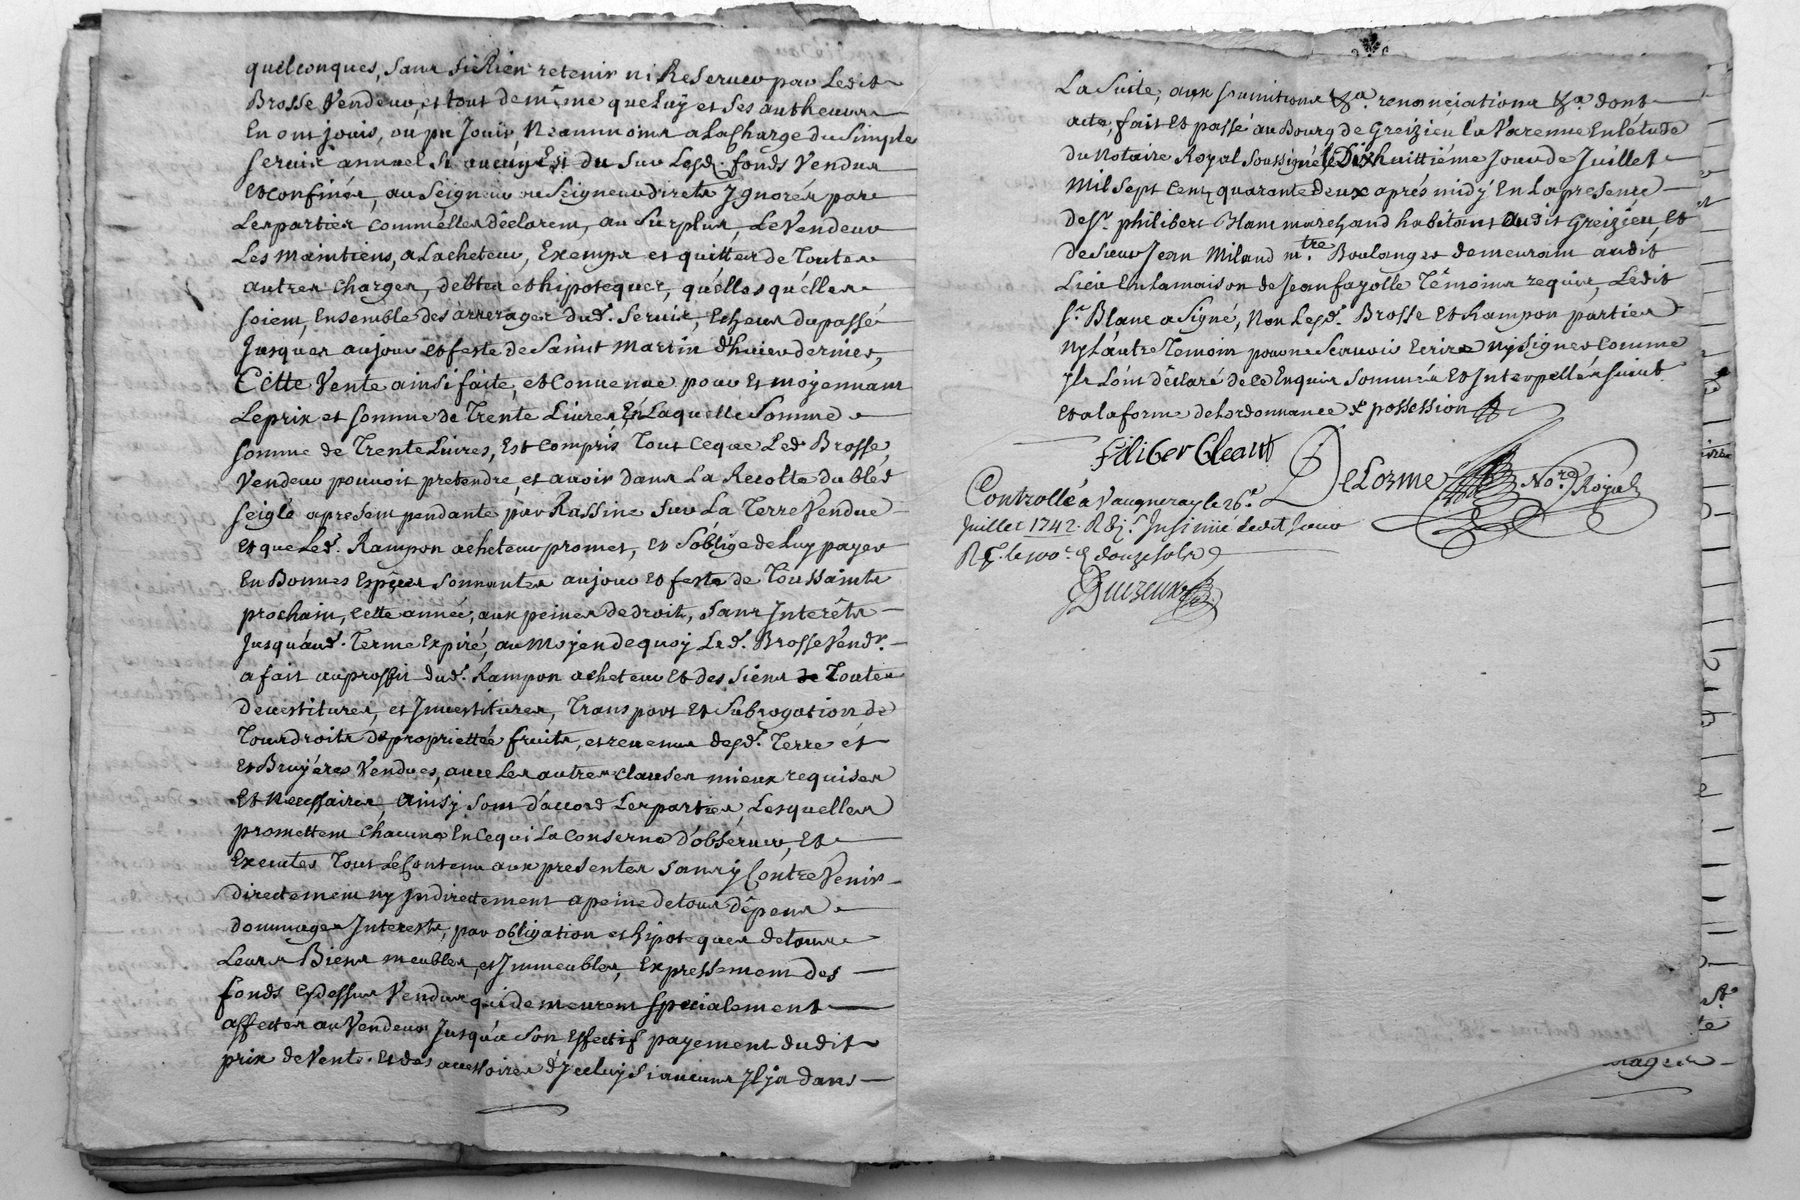 quelconques, sans si Rien retenir ni Reserver par Ledit
Brosse Vendeur, et tout de même que Luy et ses autheurs
En ont jouis, ou pu Jouir, Neanmoins a La Charge du Simple
servis annuel si aucuns Est du sur Lesd. fonds Vendus
Et confinés, au Seigneur ou Seigneurs directs Ignorés par
Les parties comm'elles déclarent, au surplus, Le Vendeur
Les maintiens, a Lacheteur, Exempts et quittes de Toutes
autres charges, debtes et hipoteques, quélles quélles
soient, Ensemble des àrrerages dud. servis, Echeus du passé
Jusques au jour et feste de Saint Martin d'hiver dernier,
Cette Vente ainsi faite, et Convenue pour Et moyennant
Le prix et somme de Trente Livres, En Laquelle Somme
somme de Trente Livres, Est compris Tout ceque Led. Brosse,
Vendeur pouvoit pretendre, et avoir dans La Recolte du bled
seigle apresent pendante par Rassine sur La Terre Vendue
Et que Led. Rampon acheteur promet, Et s'oblige de Luy payer
En Bonnes Espèces sonnantes au jour Et feste de Toussaints
prochain, cette année, aux peines de droit, sans Interêts
Jusquáud. Terme Expiré, au Moyen de quoy Led. Brosse Vendr.
a fait au proffit dud. Rampon acheteur Et des siens de Toutes
devestitures, et Jnvestitures, Transport Et Subrogation de
Tous droits de propriettée fruits, et revenus desd. Terre et
Et Bruyéres Vendues, avec Les autres clauses mieux requises
Et Necessaires, Ainsy sont d'accord Les parties, Lesquelles
promettent chacune En ce qui La conserne d'observer, Et
Executer Tout Le Contenu aux presentes sans y Contre Venir
directement ny Jndirectement a peine de tous dépens
dommages Interests, par obligation et hipoteques de tous
Leurs Biens meubles, et Jmmeubles, Expressement des
fonds cydessus Vendus qui demeurent specialement
affectés au Vendeur Jusqu'a son Effectif payement dudit
prix de Vente. Et des accessoires d'Jceluy si aucuns Jl ÿ a dans
La Suite, aux soumitions &a. renonçiations &a. dont
acte, fait Et passé au Bourg de Greizieu La Varenne En Létude
du Notaire Royal soussigné Le Dixhuittiéme Jour de Juillet
Mil Sept Cent quarante deux aprés midÿ En La presence
de Sr. philibert Blanc marchand habitant audit Greizieu, Et
de sieur Jean Miland mtre. Boulanger demeurant audit
Lieu En La maison de Jean fayolle Témoins requis, Ledit
Sr. Blanc a signé, Non Lesd. Brosse Et Rampon parties
ny L'autre Temoin pour ne sçavoir Ecrire Ny signer comme
Jls L'ont déclaré de ce Enquis sommés Et Interpellés suivt.
Et a la forme de Lordonnance & possession
filiber Cleant
DeLorme Nore. Royal
Controllé a Vaugneray le 26e.
Juillet 1742. R 8 j. s Jnsinué Ledit Jour
douze sols